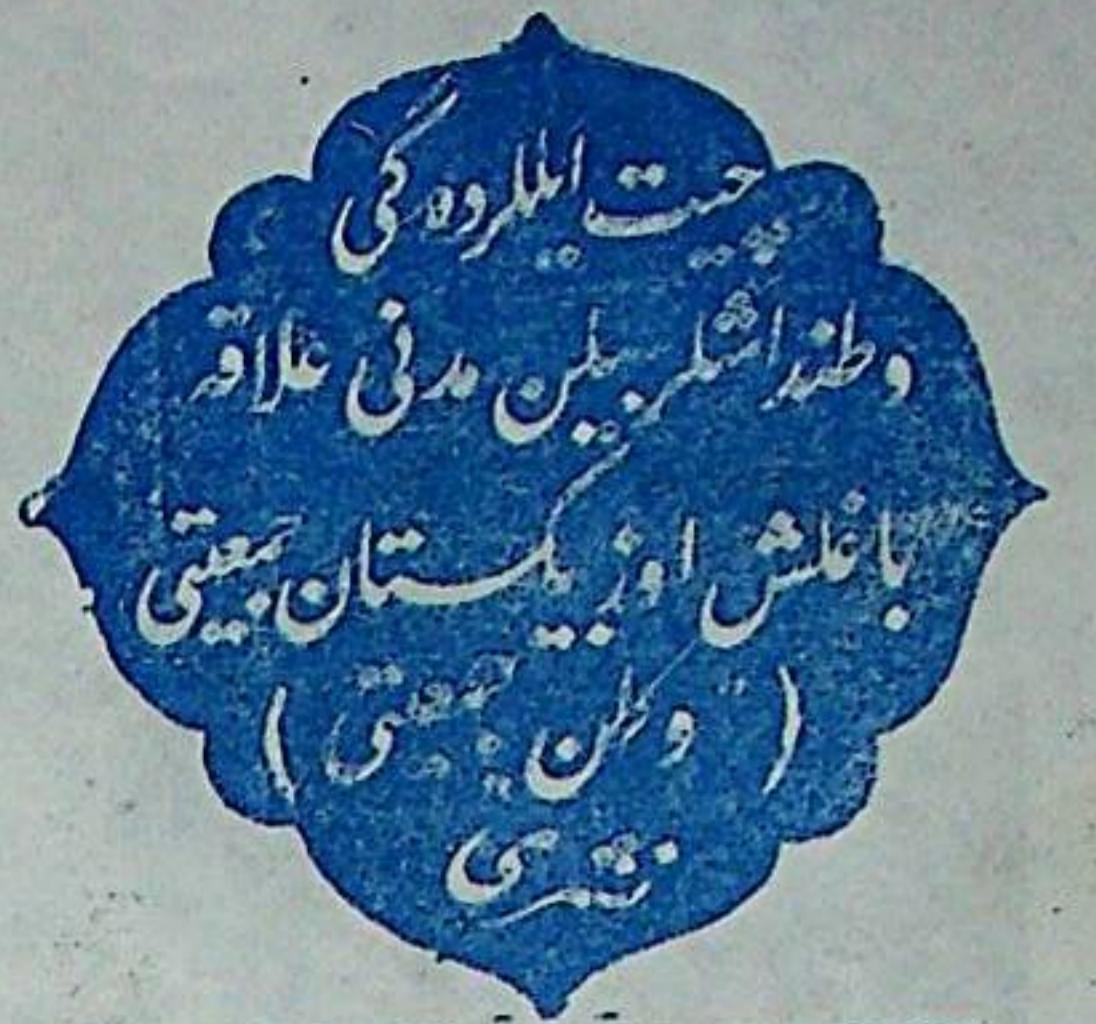 چیت ایللرده گی
وطنداشلر بیلن مدنی علاقه
باغلش اوزبیکستان جمعیتی
( وطن جمعیتی )
نشری